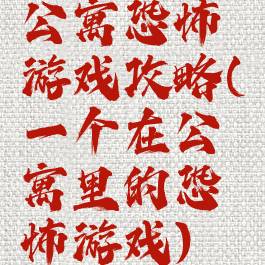 公寓恐怖
游戏攻略(
一个在公
寓里的恐
怖游戏)